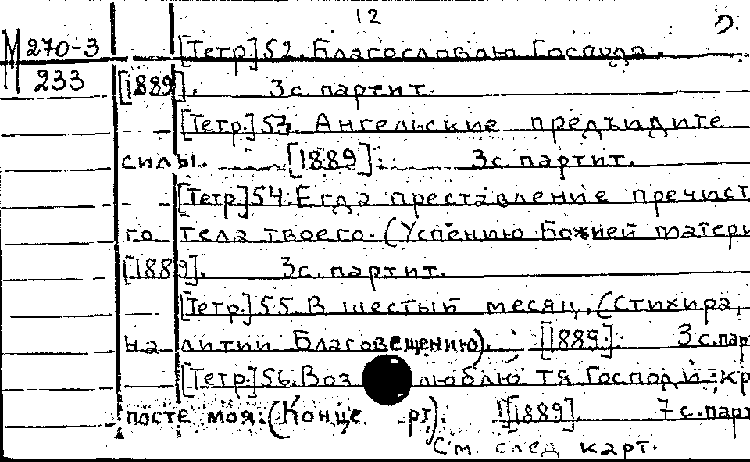 12 2.
М 270-3 [Тетр.] 52. Благословлю Господа.
233 [1889]. 3 с. партит.
[Тетр.] 53. Ангельские предъидите
силы. [1889]. 3 с. партит.
[Тетр.] 54. Егда преставление пречист
го тела твоего. (Успению Божией матери
[1889]. 3 с. партит.
[Тетр.] 55. В шестый месяц. (Стихира,
на литии Благовещению). [1889]. 3 с. пар
[Тетр.] 56. Воз люблю тя Господи, кр
посте моя. (Конце рт). [1889]. 7 с. парт
См. след карт.